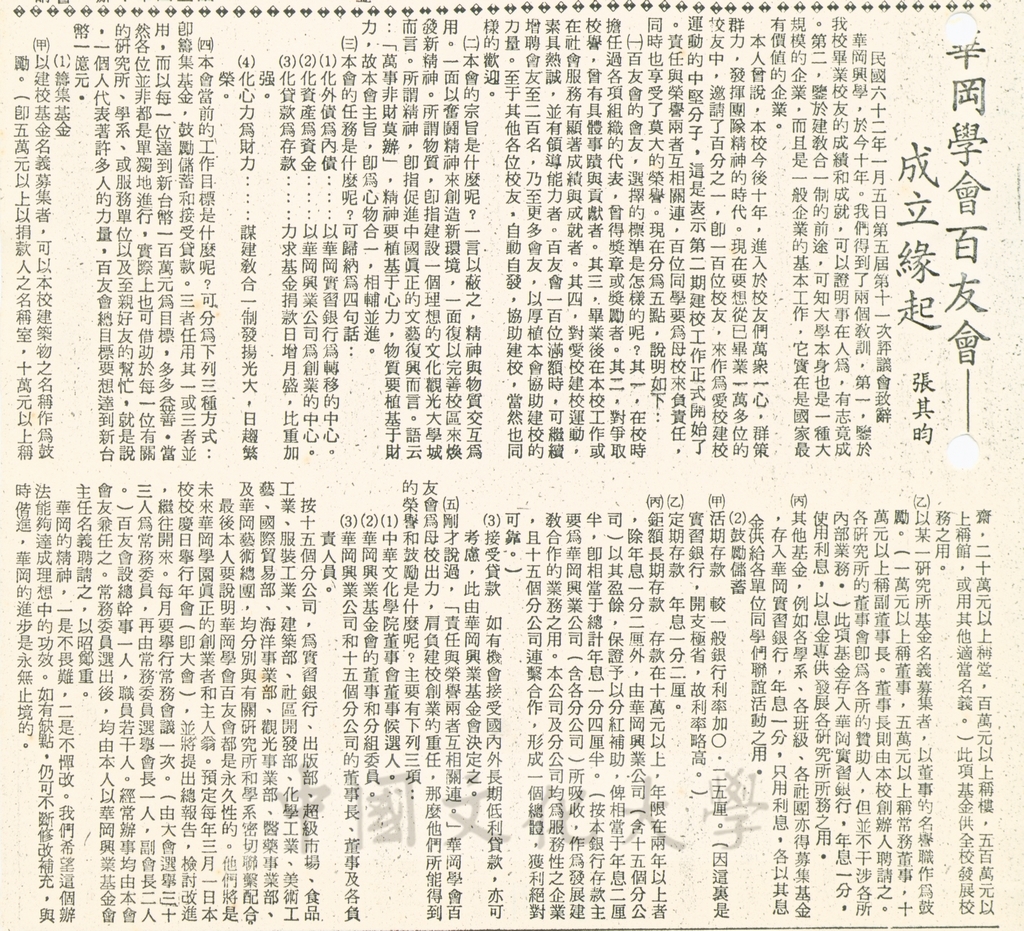 華岡學會百友會——
成立緣起
張其昀
民國六十二年一月五日第五屆第十一次評議會致辭
華岡興學，於今十年。我們得到了兩個敎訓，第一，鑒於
我校畢業校友的成績和成就，可以證明事在人爲，有志竟成
。第二，鑒於建敎合一制的前途，可知大學本身也是一種大
規模的企業，而且是一般企業的基本工作，它實在是國家最
有價値的企業。
本人曾說，本校今後十年，進入於校友們萬衆一心，群策
群力，發揮團隊精神的時代。現在要想從已畢業一萬多位的
校友中，邀請了百分之一，卽一百位校友，來作爲愛校建校
運動的中堅分子，這是表示第二期建校工作正式開始了
。責任與榮譽兩者互相關連，百位同學要爲母校來負責任，
同時也享受了莫大的榮譽。現在分爲五點，說明如下：
㈠百友會的會友，選擇的標準是怎樣的呢？其一，在校時
擔任過各項組織的代表，曾得獎章或獎勵者。其二，對爭取
校譽，曾有具體事蹟與貢獻者。其三，畢業後在本校工作或
在社會服務有顯著成績與成就者。其四，對愛校建校運動，
素具熱誠，並有領導能力者。百友會一百位滿額時，可繼續
增聘會友至二百名，乃至更多會友，以厚植本會協助建校的
力量。至于其他各位校友，自動自發，協助建校，當然也同
樣的歡迎。
㈡本會的宗旨是什麼呢？一言以蔽之，精神與物質交互爲
用。一面以奮鬪精神來創造新環境，一面復以完善校區來煥
發新精神。所謂物質，卽指建設一個理想的文化觀光大學城
而言。所謂精神，卽指促進中國眞正的文藝復興而言。語云
：「萬事非財莫辦」，精神要植基于心力，物質要植基于財
力，故本會主旨，卽爲心物合一，相輔並進。
㈢本會的任務是什麼呢？可歸納爲四句話：
⑴化外債爲內債：：以華岡實習銀行爲轉移的中心。
⑵化資產爲資金：：以華岡興業公司爲創業的中心。
⑶化貸款爲存款：：力求基金捐款日增月盛，比重加
强。
⑷化心力爲財力：：謀建敎合一制發揚光大，日趨繁
榮。
㈣本會當前的工作目標是什麼呢？可分爲下列三種方式：
卽籌集基金，鼓勵儲蓄和接受貸款。三者任用其一或三者並
用，而以每一位達到新台幣一百萬元爲目標，多多益善。當
然各位並非都是單獨地進行，實際上也可借助於每一位有關
的硏究所、學系、或服務單位以及至親好友的幫忙，就是說
，一個人代表著許多人的力量，百友會總目標要想達到新台
幣一億元。
⑴籌集基金
㈙以建校基金名義募集者，可以本校建築物之名稱作爲鼓
勵。（卽五萬元以上以捐款人之名稱室，十萬元以上稱
齋，二十萬元以上稱堂，百萬元以上稱樓，五百萬元以
上稱館，或用其他適當名義。）此項基金供全校發展校
務之用。
㈚以某一硏究所基金名義募集者，以董事的名譽職作爲鼓
勵。（一萬元以上稱董事，五萬元以上稱常務董事，十
萬元以上稱副董事長。董事長則由本校創辦人聘請之。
各硏究所的董事會卽爲各所的贊助人，但並不干涉各所
內部業務。）此項基金存入華岡實習銀行，年息一分，
使用利息，以息金專供發展各硏究所所務之用。
㈛其他基金，例如各學系、各班級、各社團亦得募集基金
，存入華岡實習銀行，年息一分，只用利息，各以其息
金供給各單位同學們聯誼活動之用。
⑵鼓勵儲蓄
㈙活期存款　較一般銀行利率加〇・二五厘。（因這裏是
實習銀行，開支極省，故利率略高。）
㈚定期存款　年息一分二厘。
㈛鉅額長期存款　存款在十萬元以上，年限在兩年以上者
，除年息一分二厘外，由華岡興業公司（含十五個分公
司）以其盈餘，保證予以分紅補助，俾相當于年息二厘
半，卽相當于總計年息一分四厘半。（按本銀行存款主
要爲華岡興業公司（含各分公司）所吸收，作爲發展建
敎合作的業務之用。本公司及分公司均爲服務性之企業
，且十五個分公司連繫合作，形成一個總體，獲利絕對
可靠。）
⑶接受貸款　如有機會接受國內外長期低利貸款，亦可
考慮，此由華岡興業基金會決定之。
㈤剛才說過，「責任與榮譽兩者互相關連。」華岡學會百
友會爲母校出力，肩負建校創業的重任，那麼他們所能得到
的榮譽和鼓勵是什麼呢？主要有下列三項：
⑴中華文化學院董事會董事候選人。
⑵華岡興業基金會的董事和分組委員。
⑶華岡興業公司和十五個分公司的董事長、董事及各負
責人員。
按十五個分公司，爲實習銀行、出版部、超級市場、食品
工業、服裝工業、建築部、社區開發部、化學工業、美術工
藝、國際貿易部、海洋事業部、觀光事業部、醫藥事業部、
及華岡藝術總團，均分別與有關硏究所和學系密切聯繫配合。
最後本人要說明華岡學會百友會都是永久性的。他們將是
未來華岡學園眞正的創業者和主人翁。預定每年三月一日本
校校慶日舉行年會（卽大會），並將提出總報告，檢討改進
，繼往開來。每月要舉行常務會議一次。（由大會選舉三十
三人爲常務委員，再由常務委員選舉會長一人，副會長二人
。）百友會設總幹事一人，職員若干人。經常辦事均由本會
會友兼任之。常務委員選出後，均由本人以華岡興業基金會
主任名義聘請之，以昭鄭重。
華岡的精神，一是不畏難，二是不憚改。我們希望這個辦
法能夠達成理想中的功效。如有缺點，仍可不斷修改補充，與
時偕進，華岡的進步是永無止境的。
中國文化大學